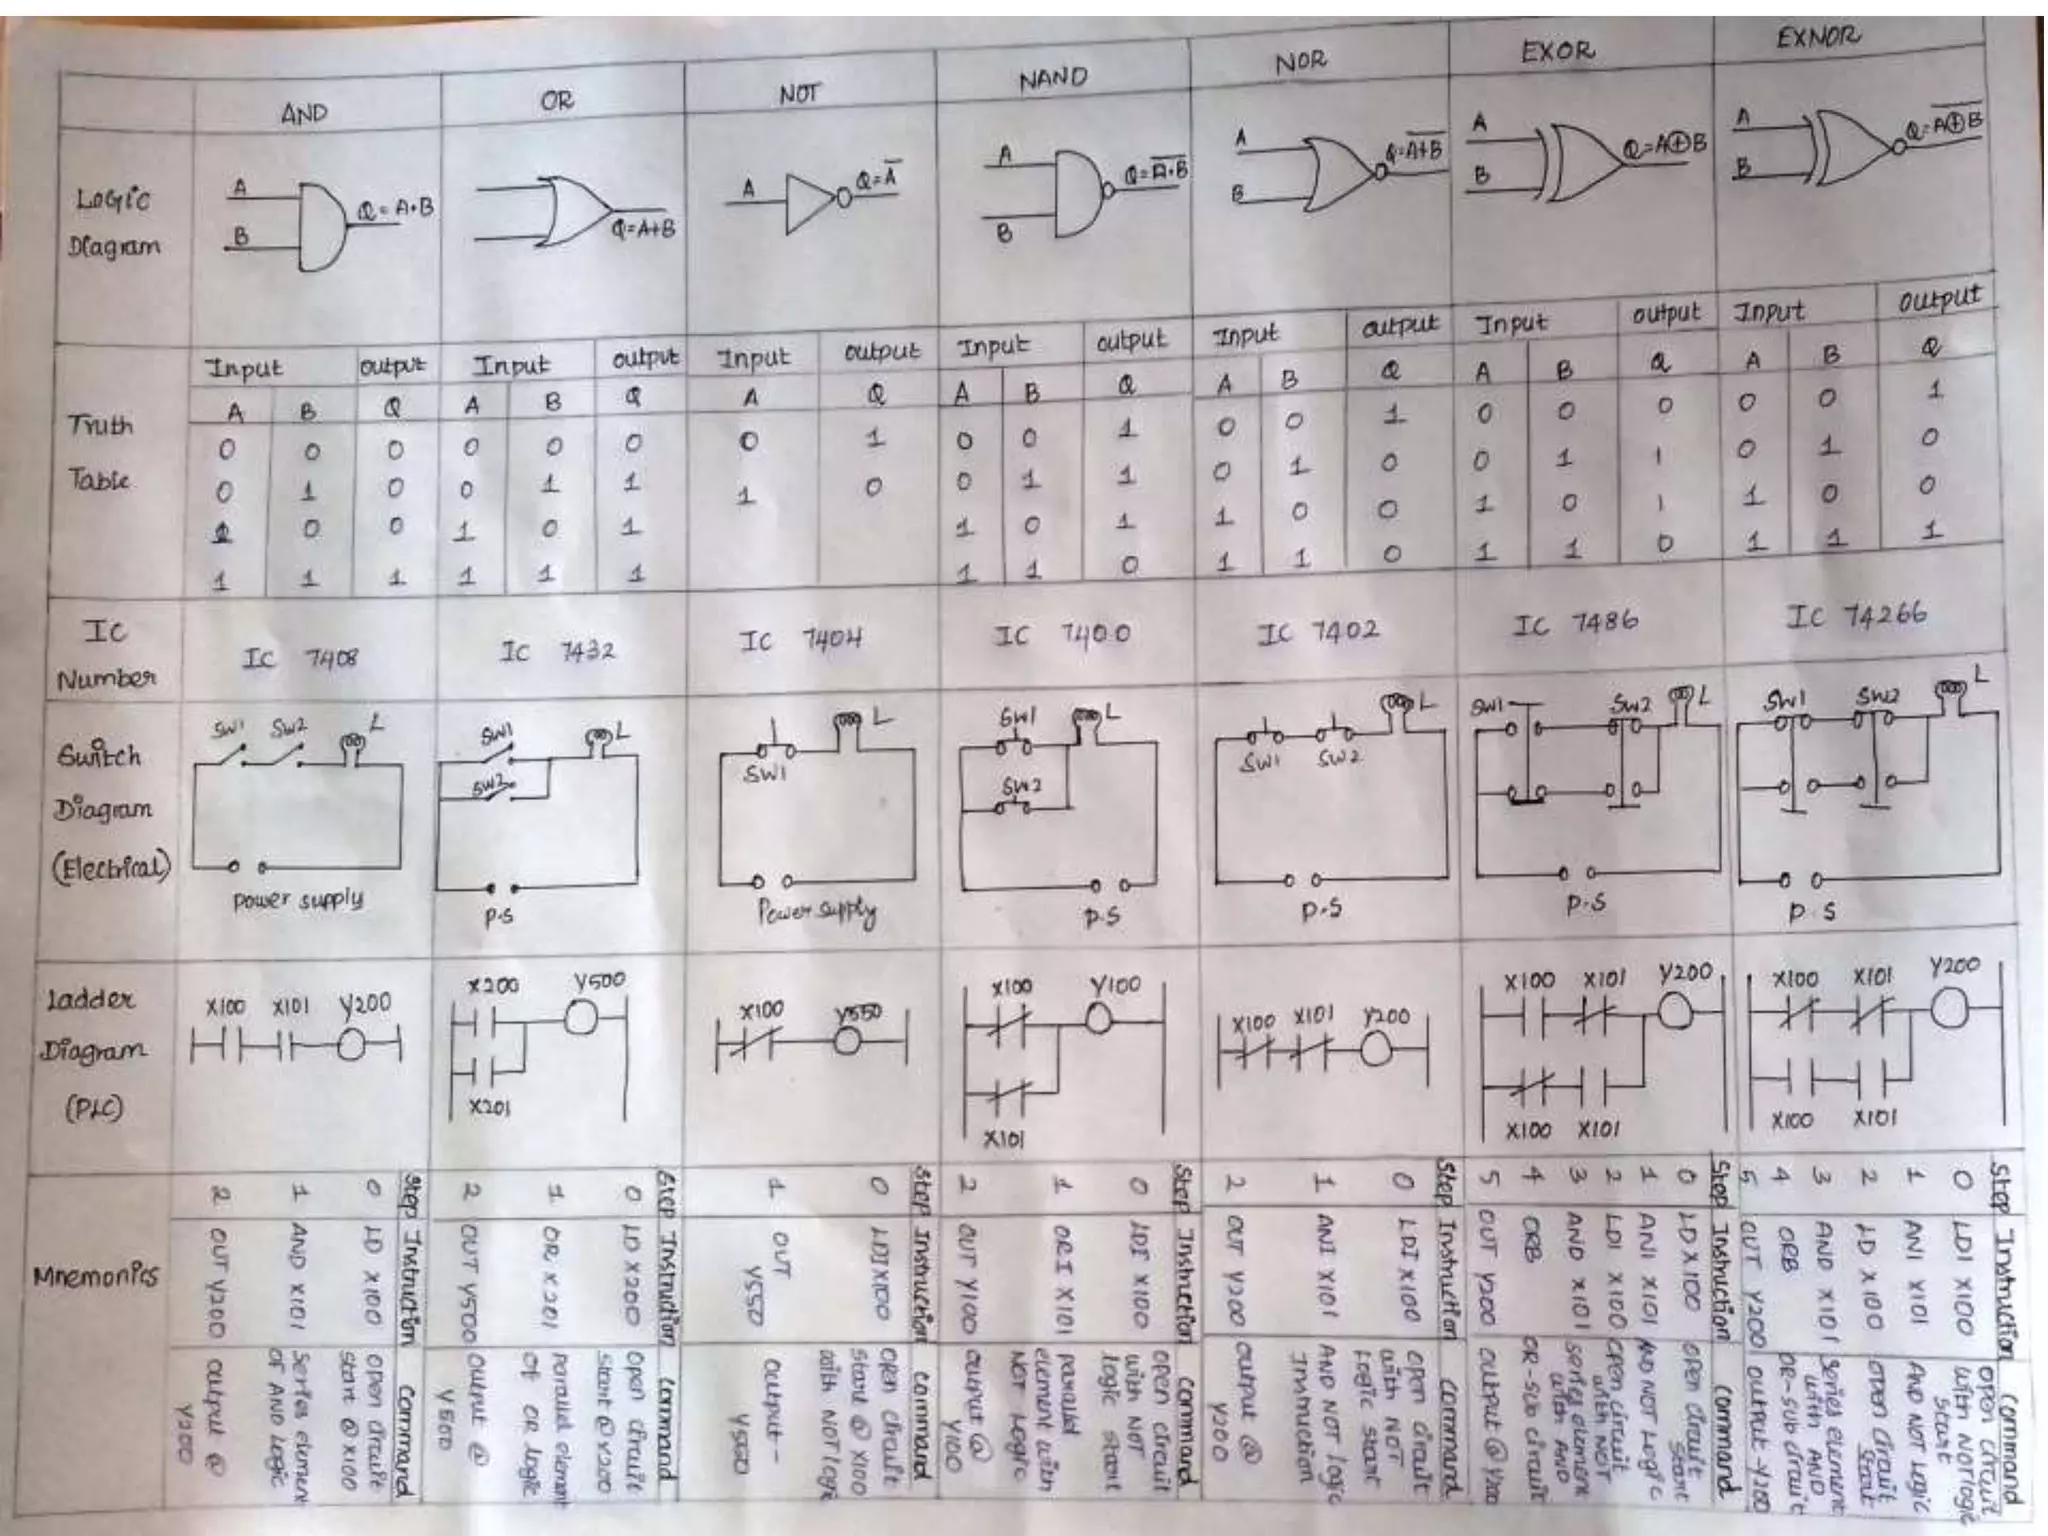 AND OR NOT NAND NOR EXOR EXNOR
Logic
Diagram
A B Q = A.B
Q=A+B
A Q=A̅
A B Q=A̅.̅B̅
A B Q=A̅+̅B̅
A B Q=A⊕B
A B Q=A̅⊕̅B̅
Truth
Table
Input output Input output Input output Input output Input output Input output Input output
A B Q A B Q A Q A B Q A B Q A B Q A B Q
0 0 0 0 0 0 0 1 0 0 1 0 0 1 0 0 0 0 0 1
0 1 0 0 1 1 1 0 0 1 1 0 1 0 0 1 1 0 1 0
1 0 0 1 0 1 1 0 1 1 0 0 1 0 1 1 0 0
1 1 1 1 1 1 1 1 0 1 1 0 1 1 0 1 1 1
IC
Number
IC 7408 IC 7432 IC 7404 IC 7400 IC 7402 IC 7486 IC 74266
Switch
Diagram
(Electrical)
SW1 SW2 L
power supply
SW1 L
SW2
P.S
L
SW1
Power supply
SW1 L
SW2
P.S
L
SW1 SW2
P.S
SW1 SW2 L
P.S
SW1 SW2 L
P.S
Ladder
Diagram
(PLC)
X100 X101 Y200
X200 Y500
X201
X100 Y550
X100 Y100
X101
X100 X101 Y200
X100 X101 Y200
X100 X101
X100 X101 Y200
X100 X101
Mnemonics
Step Instruction Command
0 LD X100 open circuit
start @ X100
1 AND X101 Series element
of AND Logic
2 OUT Y200 output @
Y200
Step Instruction Command
0 LD X200 open circuit
start @ X200
1 OR X201 parallel element
of OR logic
2 OUT Y500 output @
Y500
Step Instruction Command
0 LDI X100 open circuit
start @ X100
with NOT logic
1 OUT
Y550 output -
Step Instruction Command
0 LDI X100 open circuit
with NOT
logic start
1 ORI X101 parallel
element with
NOT Logic
2 OUT Y100 output @
Y100
Step Instruction Command
0 LDI X100 open circuit
with NOT
Logic start
1 ANI X101 AND NOT logic
Instruction
2 OUT Y200 output @
Y200
Step Instruction Command
0 LD X100 open circuit
start
1 ANI X101 AND NOT Logic
2 LDI X100 open circuit
with NOT
3 AND X101 series element
with AND
4 ORB OR-Sub circuit
5 OUT Y200 output @ Y200
Step Instruction Command
0 LDI X100 open circuit
with NOT logic
Start
1 ANI X101 AND NOT Logic
2 LD X100 open circuit
Start
3 AND X101 Series element
with AND
4 ORB OR-Sub circuit
5 OUT Y200 output